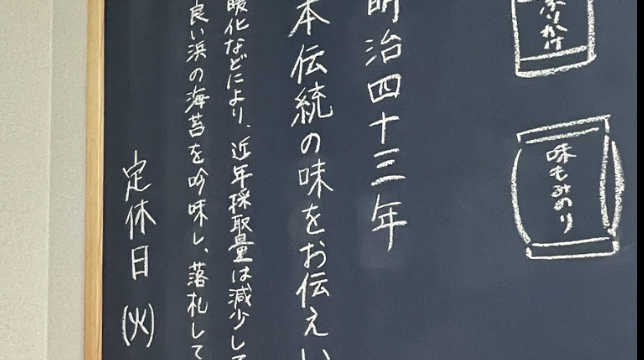 ふりかけ
味もみのり
明治四十三年
本伝統の味をお伝えい
暖化などにより、近年採取量は減少して
良い浜の海苔を吟味し、落札して
定休日(火)